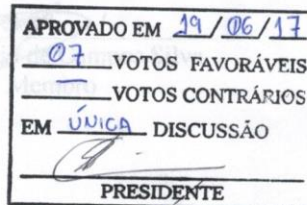 APROVADO EM 19/06/17
07 VOTOS FAVORÁVEIS
VOTOS CONTRÁRIOS
EM ÚNICA DISCUSSÃO
PRESIDENTE